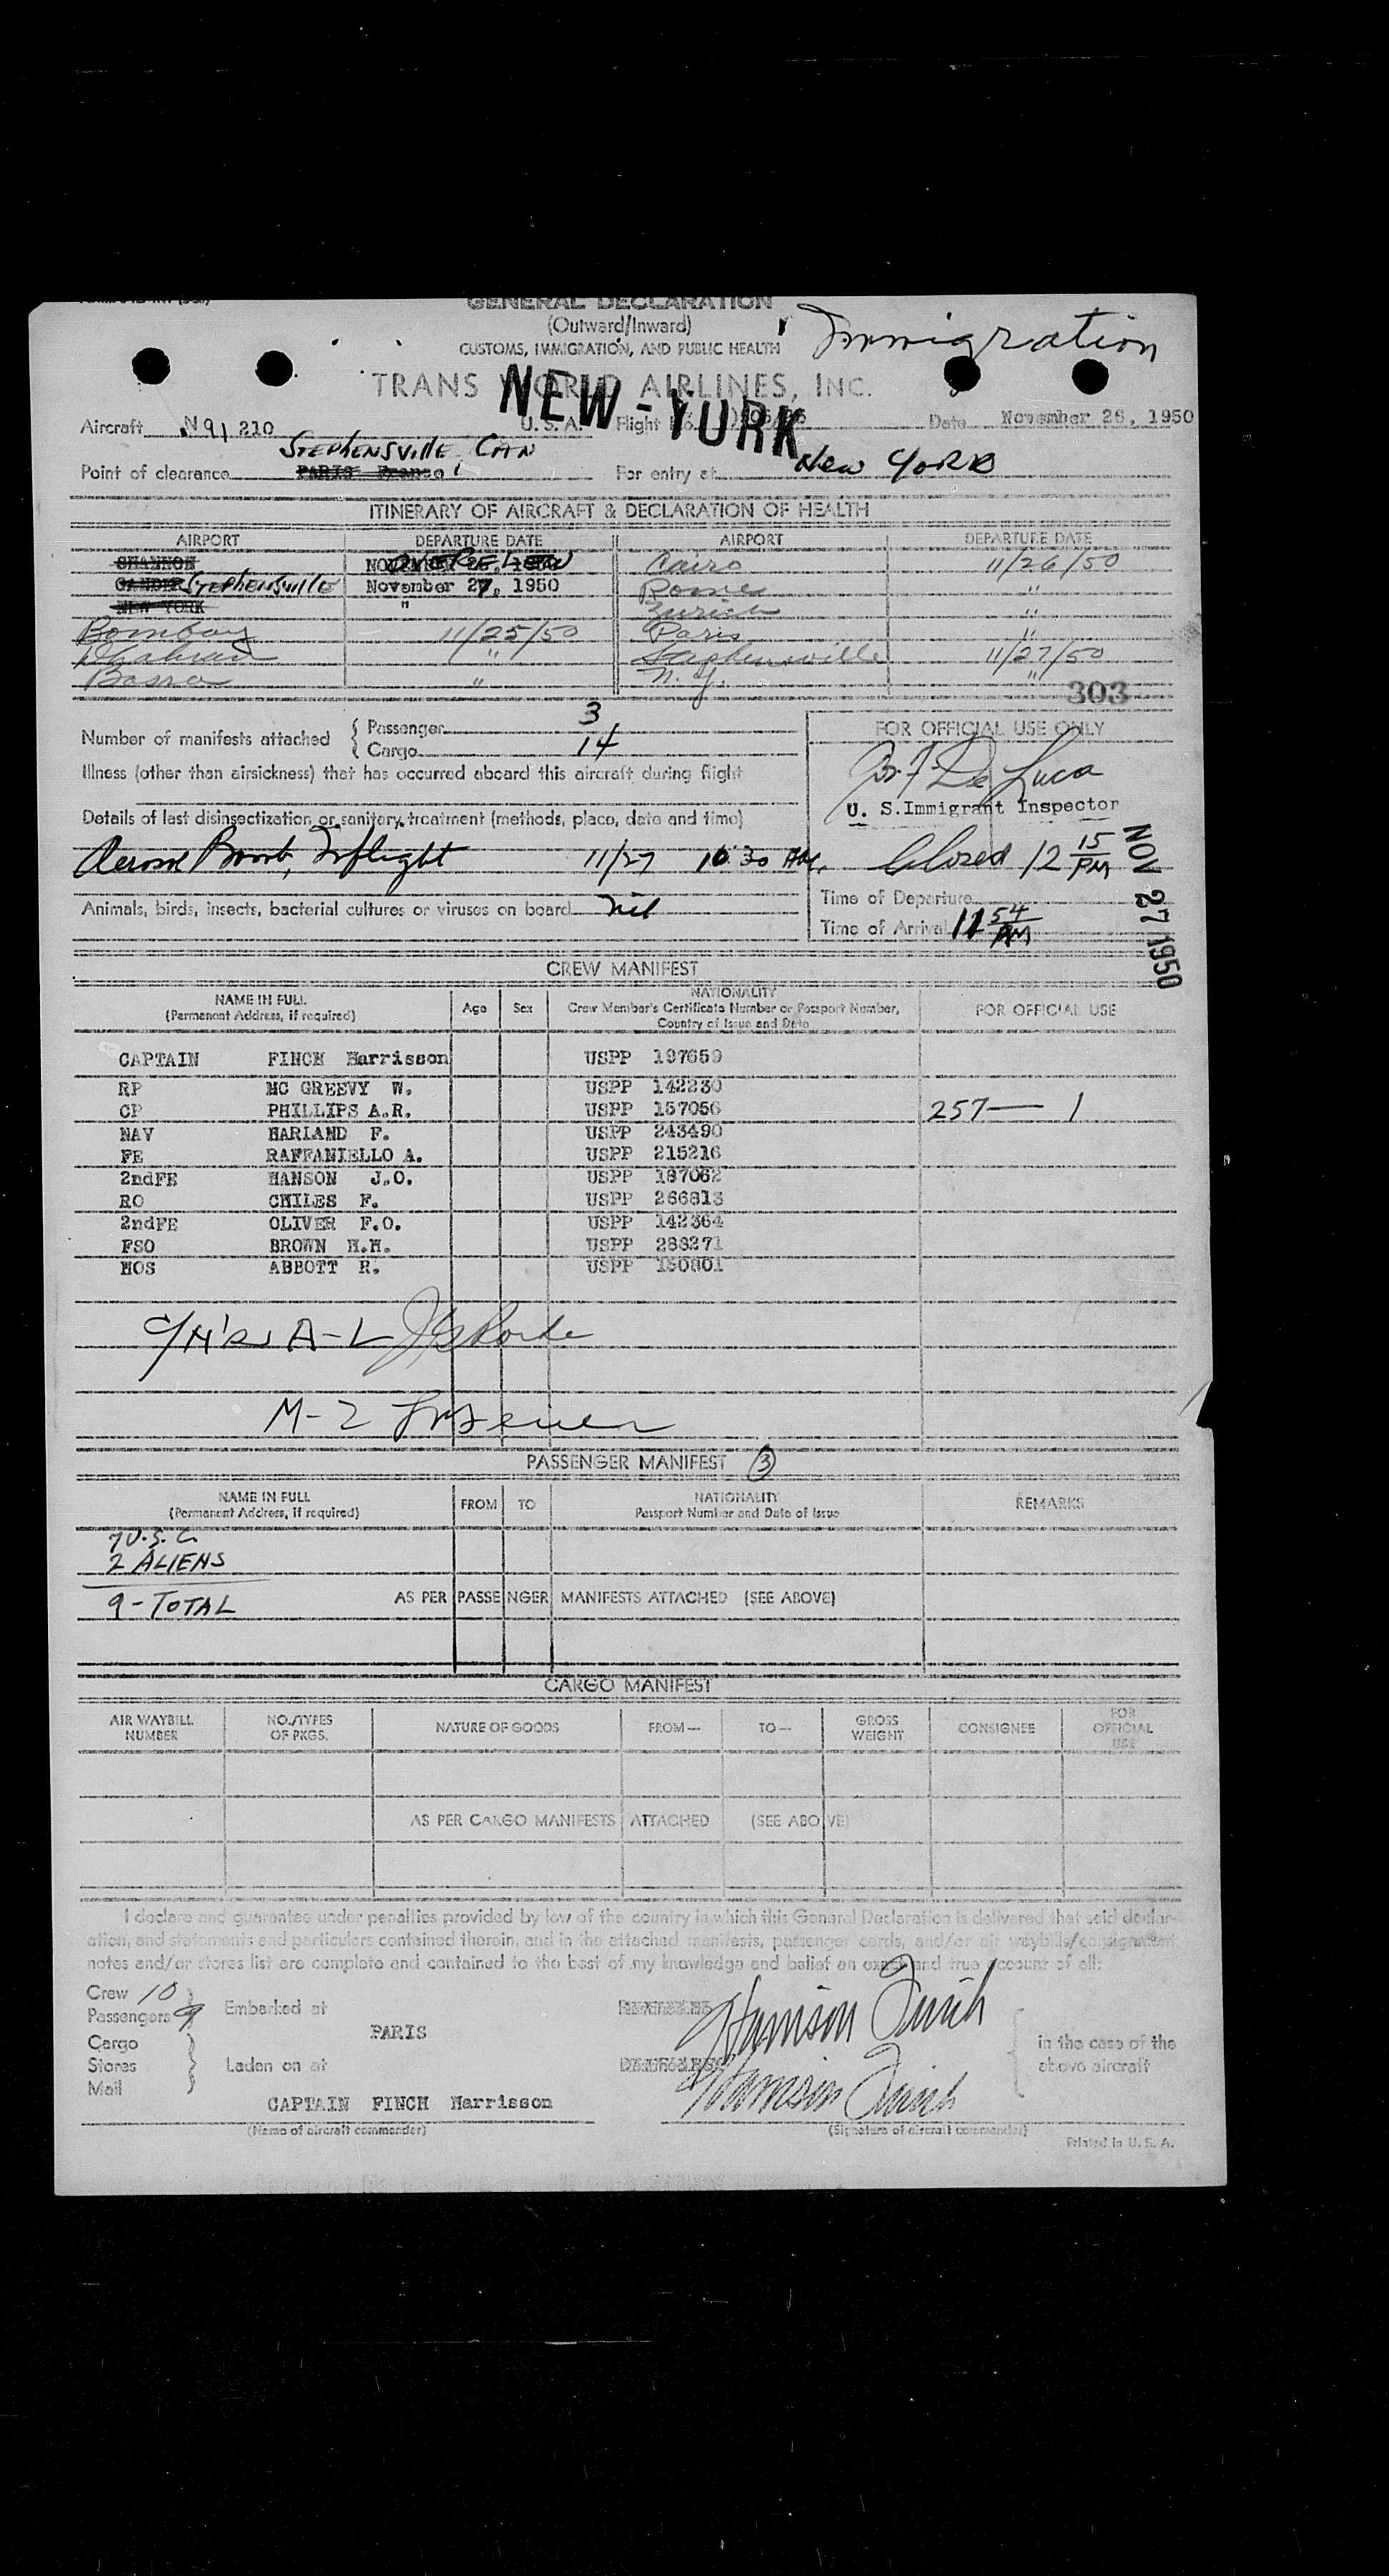 GENERAL DECLARATION
(Outward/Inward)
Immigration
CUSTOMS, IMMIGRATION, AND PUBLIC HEALTH
TRANS WORLD AIRLINES, INC.
NEW-YORK
Aircraft N91210 U.S.A. Flight No. Date November 26, 1950
STEPHENSVILLE CAN
Point of clearance PARIS France For entry at New YORK
ITINERARY OF AIRCRAFT & DECLARATION OF HEALTH
AIRPORT DEPARTURE DATE AIRPORT DEPARTURE DATE
SHANNON Cairo 11/26/50
GANDER STEPHENSVILLE November 27, 1950 Rome "
NEW YORK " Zurich "
Bombay 11/25/50 Paris "
Dhahran " Stephensville 11/27/50
Basra " N.Y. "
303
Number of manifests attached { Passenger 3
Cargo 14
FOR OFFICIAL USE ONLY
De Luca
U. S. Immigrant Inspector
Illness (other than airsickness) that has occurred aboard this aircraft during flight
Details of last disinsectization or sanitary treatment (methods, place, date and time)
Aerosol Bomb, Inflight 11/27 10:30 AM.
Closed 12 15 PM
NOV 27 1950
Animals, birds, insects, bacterial cultures or viruses on board nil
Time of Departure
Time of Arrival 11 54 AM
CREW MANIFEST
NAME IN FULL
(Permanent Address, if required) Age Sex NATIONALITY
Crew Member's Certificate Number or Passport Number,
Country of Issue and Date FOR OFFICIAL USE
CAPTAIN FINCH Harrisson USPP 197659
RP MC GREEVY W. USPP 142230
CP PHILLIPS A.R. USPP 157056 257— 1
NAV HARLAND F. USPP 243490
FE RAFFANIELLO A. USPP 215216
2ndFE HANSON J.O. USPP 187062
RO CHILES F. USPP 266813
2ndFE OLIVER F.O. USPP 142364
FSO BROWN H.H. USPP 288271
HOS ABBOTT R. USPP 150801
A-L
M-Z
PASSENGER MANIFEST 3
NAME IN FULL
(Permanent Address, if required) FROM TO NATIONALITY
Passport Number and Date of Issue REMARKS
7 U.S.C.
2 ALIENS
9-TOTAL AS PER PASSENGER MANIFESTS ATTACHED (SEE ABOVE)
CARGO MANIFEST
AIR WAYBILL NUMBER NO./TYPES OF PKGS. NATURE OF GOODS FROM— TO— GROSS WEIGHT CONSIGNEE FOR OFFICIAL USE
AS PER CARGO MANIFESTS ATTACHED (SEE ABOVE)
I declare and guarantee under penalties provided by law of the country in which this General Declaration is delivered that said declar-
ation, and statements and particulars contained therein, and in the attached manifests, passenger cards, and/or air waybills/consignment
notes and/or stores list are complete and contained to the best of my knowledge and belief an exact and true account of all:
Crew 10
Passengers 9 Embarked at Harrison Finch
PARIS
Cargo in the case of the
Stores Laden on at above aircraft
Mail Harrison Finch
CAPTAIN FINCH Harrisson
(Name of aircraft commander) (Signature of aircraft commander)
Printed in U. S. A.